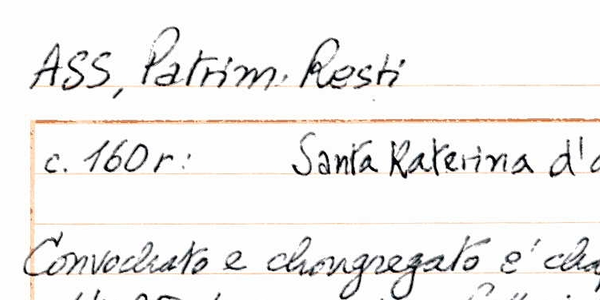 ASS, Patrim. Resti
c. 160r: Santa Katerina d'
Convochato e chongregato e'